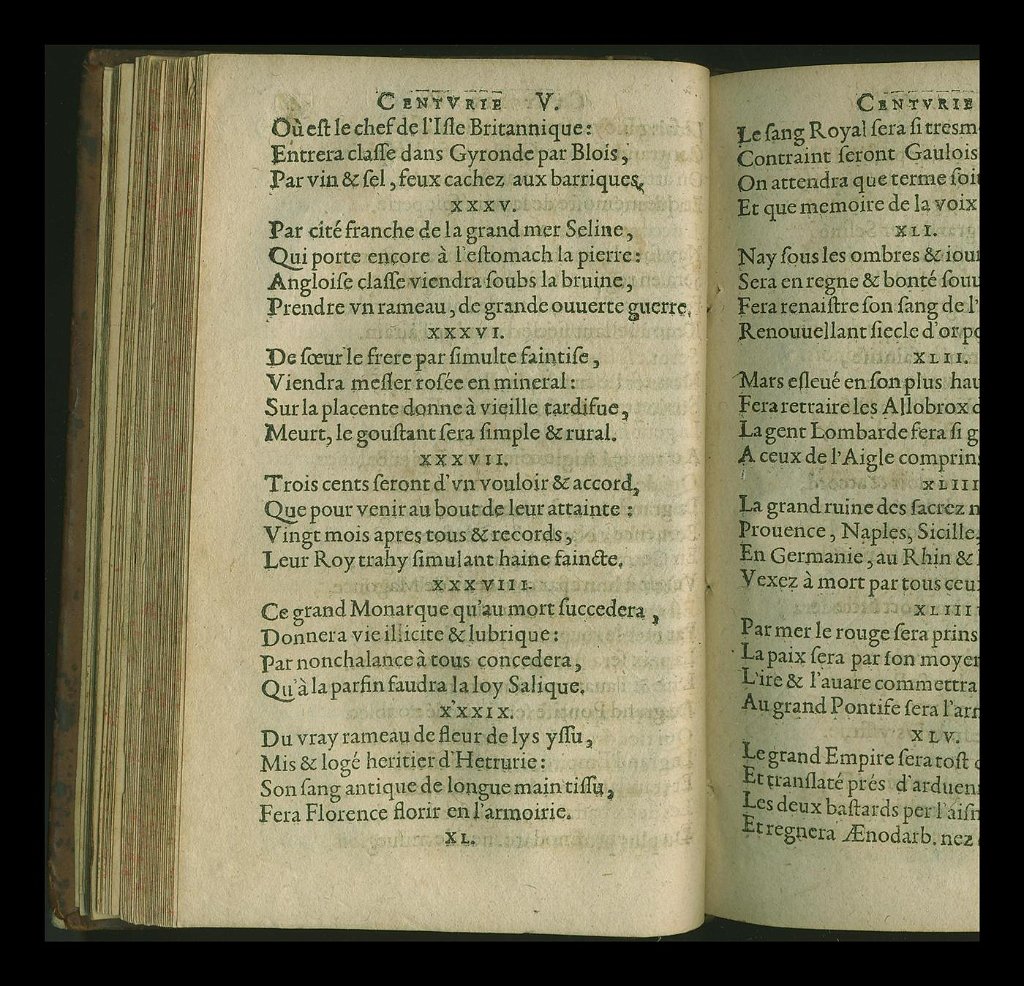 CENTVRIE V.
Où eſt le chef de l'Iſle Britannique:
Entrera claſſe dans Gyronde par Blois,
Par vin & ſel, feux cachez aux barriques,
XXXV.
Par cité franche de la grand mer Seline,
Qui porte encore à l'eſtomach la pierre:
Angloiſe claſſe viendra ſoubs la bruine,
Prendre vn rameau, de grande ouuerte guerre.
XXXVI.
De ſœur le frere par ſimulte faintiſe,
Viendra meſler roſée en mineral:
Sur la placente donne à vieille tardifue,
Meurt, le gouſtant ſera ſimple & rural.
XXXVII.
Trois cents ſeront d'vn vouloir & accord,
Que pour venir au bout de leur attainte:
Vingt mois apres tous & records,
Leur Roy trahy ſimulant haine faincte.
XXXVIII.
Ce grand Monarque qu'au mort ſuccedera,
Donnera vie illicite & lubrique:
Par nonchalance à tous concedera,
Qu'à la parfin faudra la loy Salique.
XXXIX.
Du vray rameau de fleur de lys yſſu,
Mis & logé heritier d'Hetrurie:
Son ſang antique de longue main tiſſu,
Fera Florence florir en l'armoirie.
XL.
CENTVRIE
Le ſang Royal ſera ſi tresm
Contraint ſeront Gaulois
On attendra que terme ſoit
Et que memoire de la voix
XLI.
Nay ſous les ombres & iour
Sera en regne & bonté ſouu
Fera renaiſtre ſon ſang de l'
Renouuellant ſiecle d'or po
XLII.
Mars eſleué en ſon plus hau
Fera retraire les Allobrox d
La gent Lombarde fera ſi g
A ceux de l'Aigle comprin
XLIII
La grand ruine des ſacrez n
Prouence, Naples, Sicille.
En Germanie, au Rhin &
Vexez à mort par tous ceu
XLIIII
Par mer le rouge ſera prins
La paix ſera par ſon moyen
L'ire & l'auare commettra
Au grand Pontife ſera l'arm
XLV.
Le grand Empire ſera toſt
Et tranſlaté prés d'arduen
Les deux baſtards per l'aiſn
Et regnera Ænodarb. nez